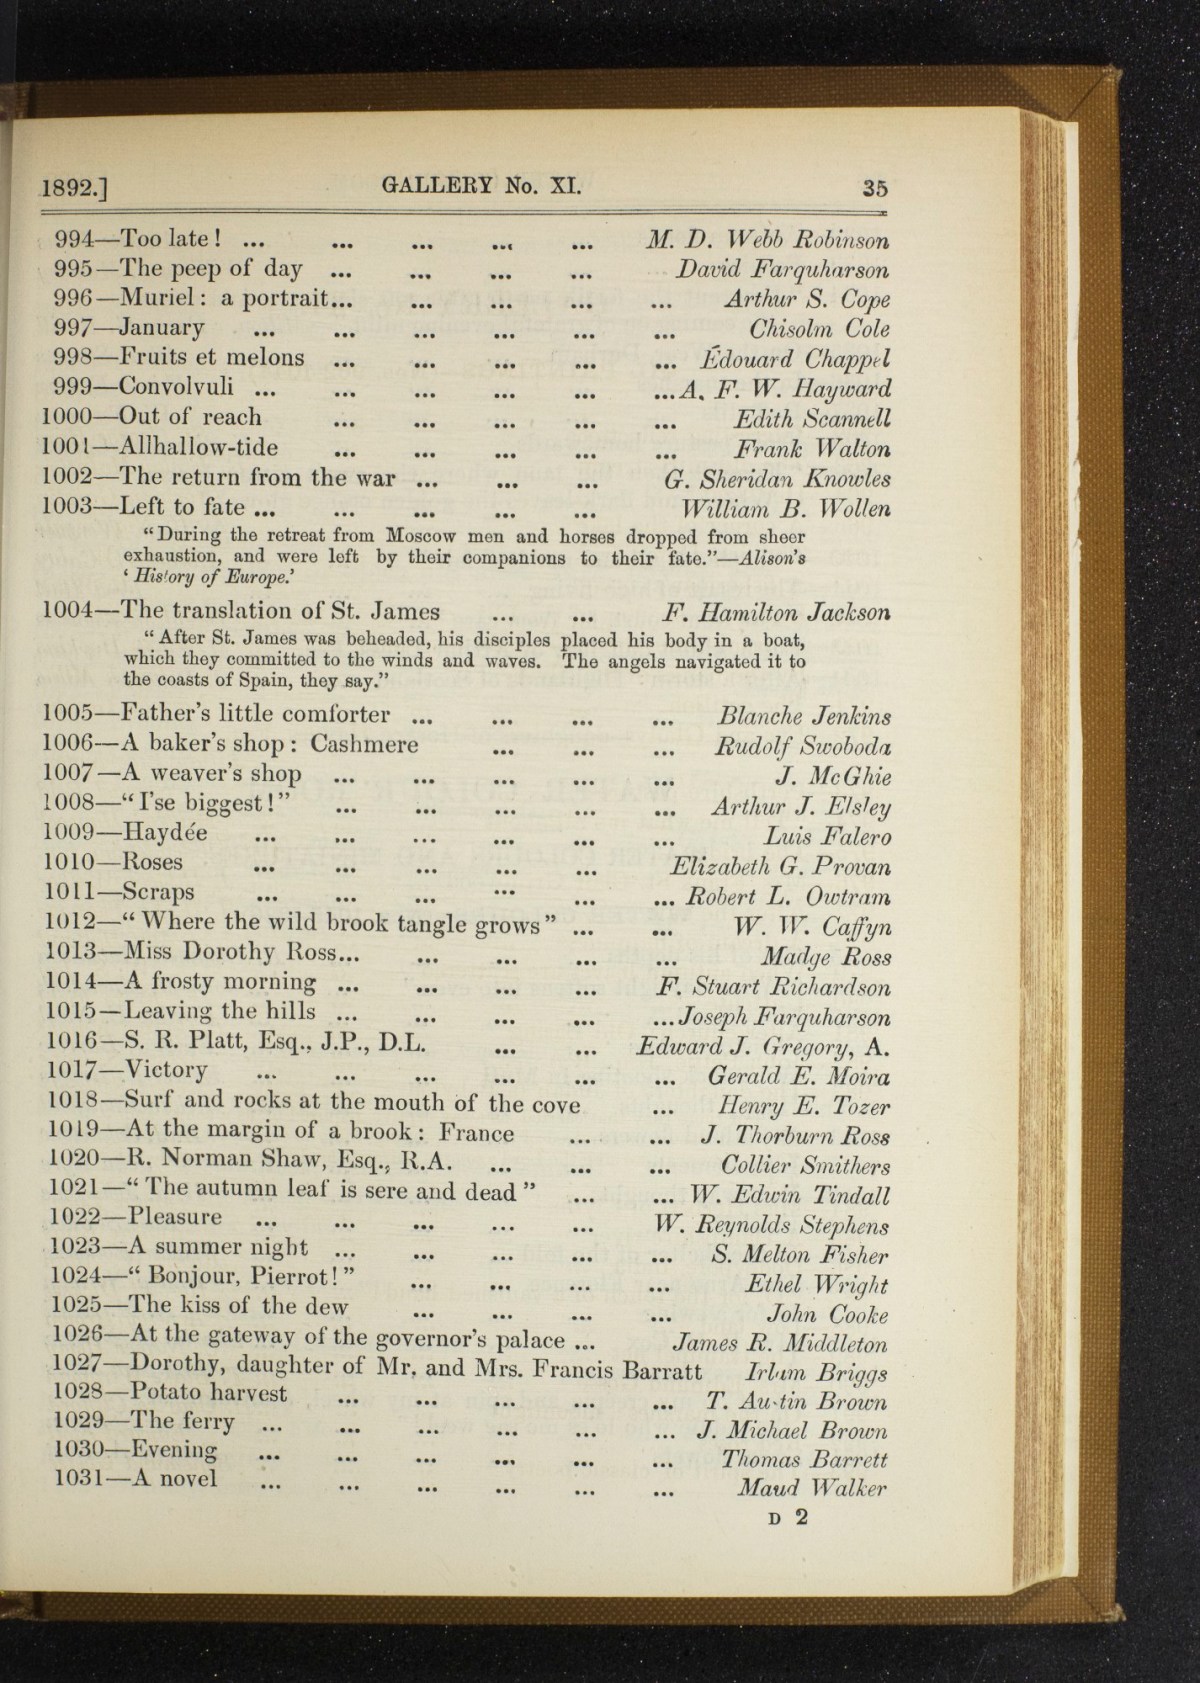 1892.] GALLERY No. XI. 35
994—Too late! ... ... ... ... ... M. D. Webb Robinson
995—The peep of day ... ... ... ... David Farquharson
996—Muriel: a portrait... ... ... ... ... Arthur S. Cope
997—January ... ... ... ... ... ... Chisolm Cole
998—Fruits et melons ... ... ... ... ... Édouard Chappel
999—Convolvuli ... ... ... ... ... ... A. F. W. Hayward
1000—Out of reach ... ... ... ... ... Edith Scannell
1001—Allhallow-tide ... ... ... ... ... Frank Walton
1002—The return from the war ... ... ... G. Sheridan Knowles
1003—Left to fate ... ... ... ... ... William B. Wollen
"During the retreat from Moscow men and horses dropped from sheer
exhaustion, and were left by their companions to their fate."—Alison's
'History of Europe.'
1004—The translation of St. James ... ... F. Hamilton Jackson
"After St. James was beheaded, his disciples placed his body in a boat,
which they committed to the winds and waves. The angels navigated it to
the coasts of Spain, they say."
1005—Father's little comforter ... ... ... ... Blanche Jenkins
1006—A baker's shop: Cashmere ... ... ... Rudolf Swoboda
1007—A weaver's shop ... ... ... ... ... J. McGhie
1008—"I'se biggest!" ... ... ... ... ... Arthur J. Elsley
1009—Haydée ... ... ... ... ... ... Luis Falero
1010—Roses ... ... ... ... ... Elizabeth G. Provan
1011—Scraps ... ... ... ... ... ... Robert L. Owtram
1012—"Where the wild brook tangle grows" ... ... W. W. Caffyn
1013—Miss Dorothy Ross... ... ... ... ... Madge Ross
1014—A frosty morning ... ... ... ... F. Stuart Richardson
1015—Leaving the hills ... ... ... ... ... Joseph Farquharson
1016—S. R. Platt, Esq., J.P., D.L. ... ... Edward J. Gregory, A.
1017—Victory ... ... ... ... ... ... Gerald E. Moira
1018—Surf and rocks at the mouth of the cove ... Henry E. Tozer
1019—At the margin of a brook: France ... ... J. Thorburn Ross
1020—R. Norman Shaw, Esq., R.A. ... ... ... Collier Smithers
1021—"The autumn leaf is sere and dead" ... ... W. Edwin Tindall
1022—Pleasure ... ... ... ... ... W. Reynolds Stephens
1023—A summer night ... ... ... ... ... S. Melton Fisher
1024—"Bonjour, Pierrot!" ... ... ... ... Ethel Wright
1025—The kiss of the dew ... ... ... ... John Cooke
1026—At the gateway of the governor's palace ... James R. Middleton
1027—Dorothy, daughter of Mr. and Mrs. Francis Barratt Irlam Briggs
1028—Potato harvest ... ... ... ... ... T. Austin Brown
1029—The ferry ... ... ... ... ... ... J. Michael Brown
1030—Evening ... ... ... ... ... ... Thomas Barrett
1031—A novel ... ... ... ... ... ... Maud Walker
D 2